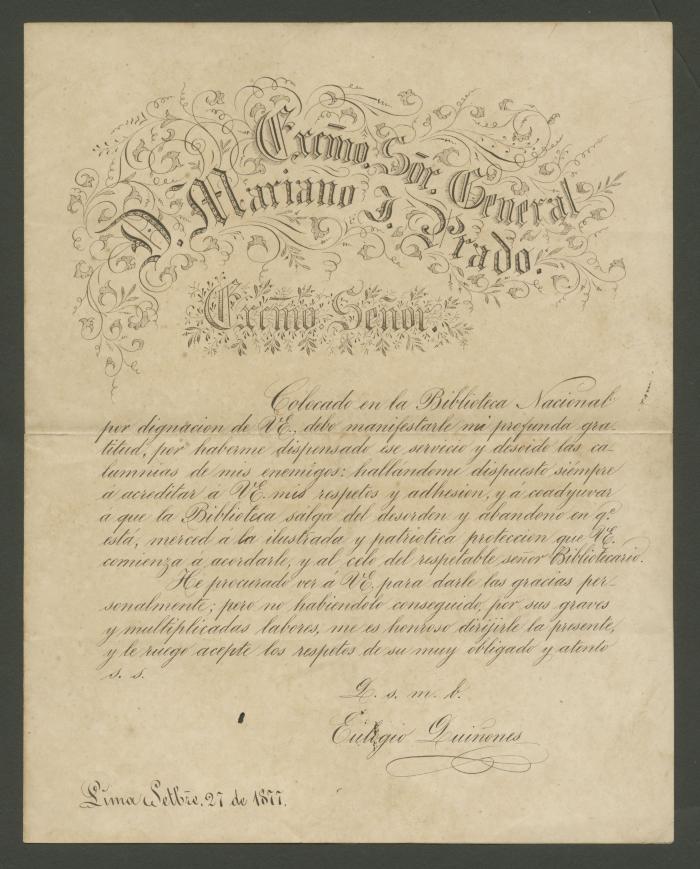 Excmo. Sõr. General
D. Mariano I. Prado.
Excmo. Señor.
Colocado en la Biblioteca Nacional
por dignacion de VE., debo manifestarle mi profunda gra-
titud, por haberme dispensado ese servicio y desoido las ca-
lumnias de mis enemigos: hallándome dispuesto siempre
a acreditar á VE. mis respetos y adhesion, y á coadyuvar
a que la Biblioteca salga del desorden y abandono en qe.
está, merced á la ilustrada y patriotica proteccion que VE.
comienza a acordarle, y al celo del respetable señor Bibliotecario.
He procurado ver á VE. para darle las gracias per-
sonalmente; pero no habiendolo conseguido, por sus graves
y multiplicadas labores, me es honroso dirijirle la presente,
y le ruego acepte los respetos de su muy obligado y atento
s. s.
Q. s. m. b.
Eulogio Quiñones
Lima Setbre. 27 de 1877.